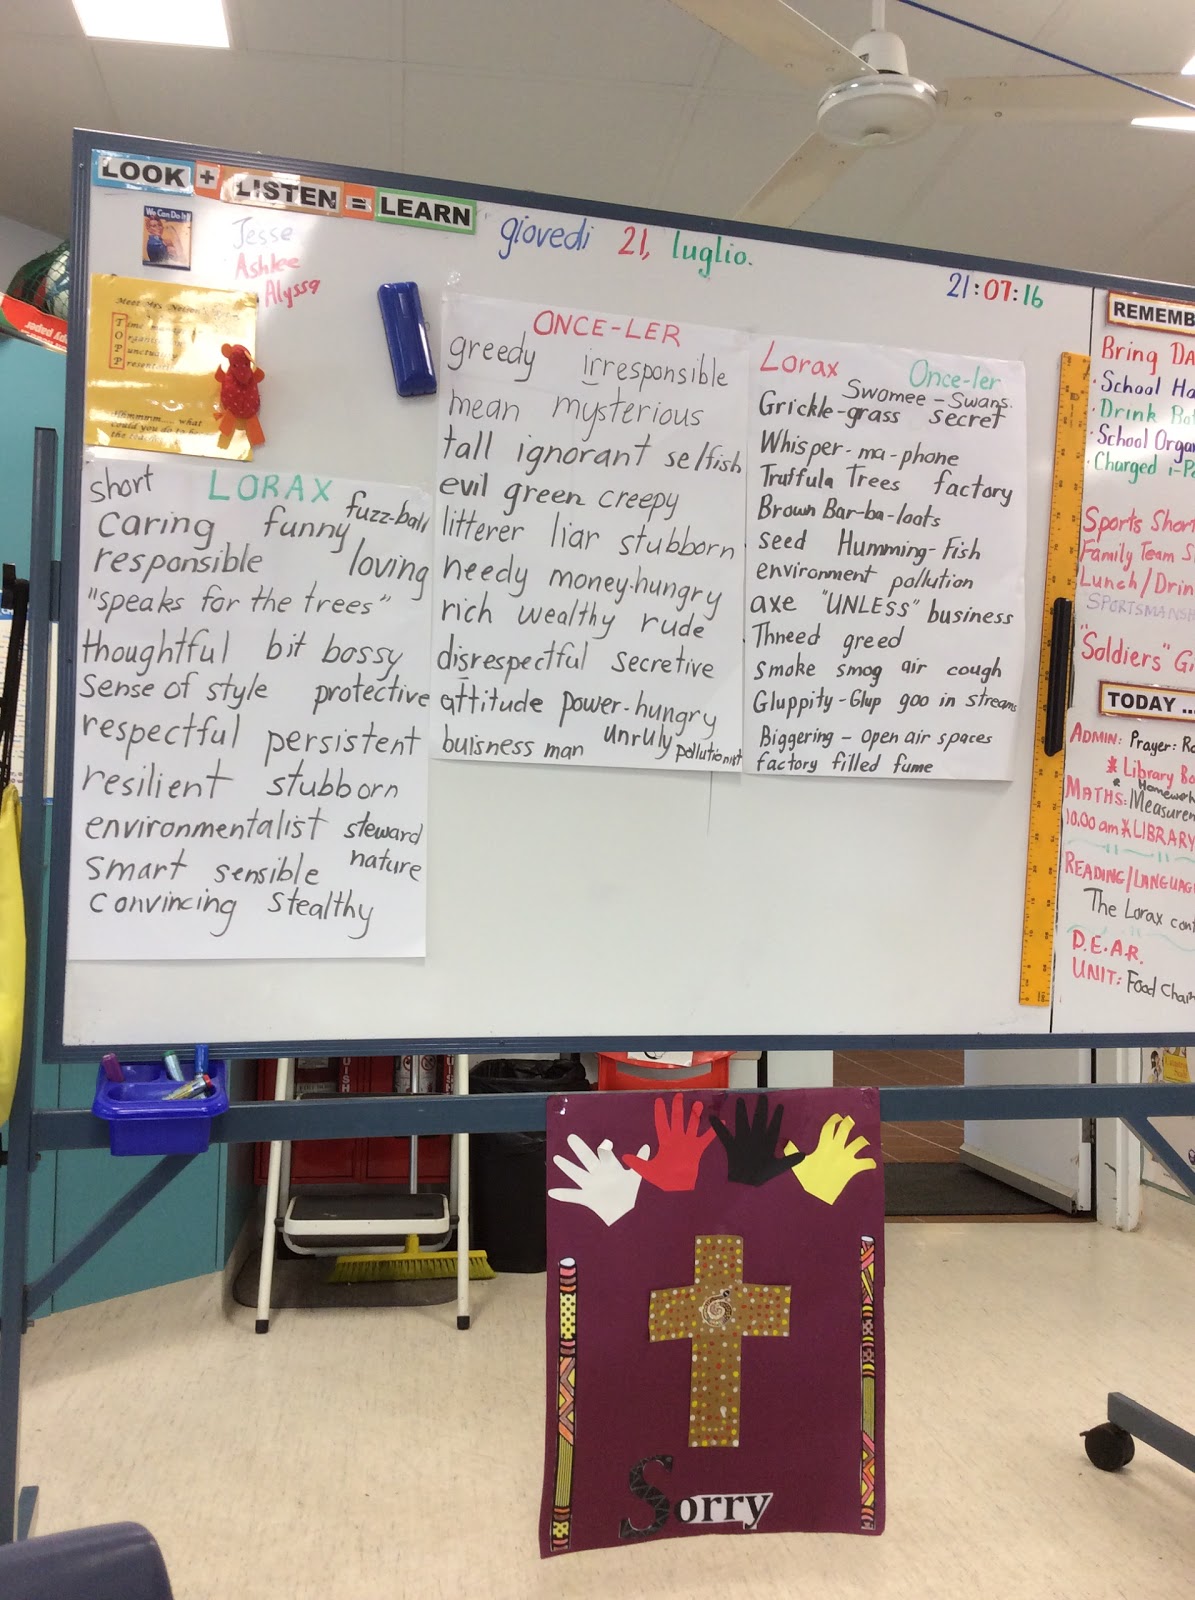 LOOK + LISTEN = LEARN
We Can Do It!
Jesse
Ashlee
Alyssa
giovedi 21, luglio.
21:07:16
Meet Mrs.
Time
Organis
Punctual
Presentat
Hmmmmm.... what
could you do to
the
LORAX
short
fuzz-ball
caring funny
responsible loving
"speaks for the trees"
thoughtful bit bossy
sense of style protective
respectful persistent
resilient stubborn
environmentalist steward
nature
smart sensible
convincing stealthy
ONCE-LER
greedy irresponsible
mean mysterious
tall ignorant selfish
evil green creepy
litterer liar stubborn
needy money-hungry
rich wealthy rude
disrespectful secretive
attitude power-hungry
buisness man unruly pollutionist
Lorax Once-ler
Swomee-Swans.
Grickle-grass secret
Whisper-ma-phone
Truffula Trees factory
Brown Bar-ba-loots
seed Humming-Fish
environment pollution
axe "UNLESS" business
Thneed greed
smoke smog air cough
Gluppity-Glup goo in streams
Biggering - open air spaces
factory filled fume
REMEMB
Bring DA
School Ha
Drink Bot
School Organ
Charged i-P
Sports Shor
Family Team S
Lunch/Drin
"SPORTSMANSH
"Soldiers" Gi
TODAY ...
ADMIN: Prayer: Ro
* Library Bo
* Homework
MATHS: Measurem
10.00 am * LIBRARY
READING/LANGUAG
The Lorax cont
D.E.A.R.
UNIT: Food Chain
Sorry